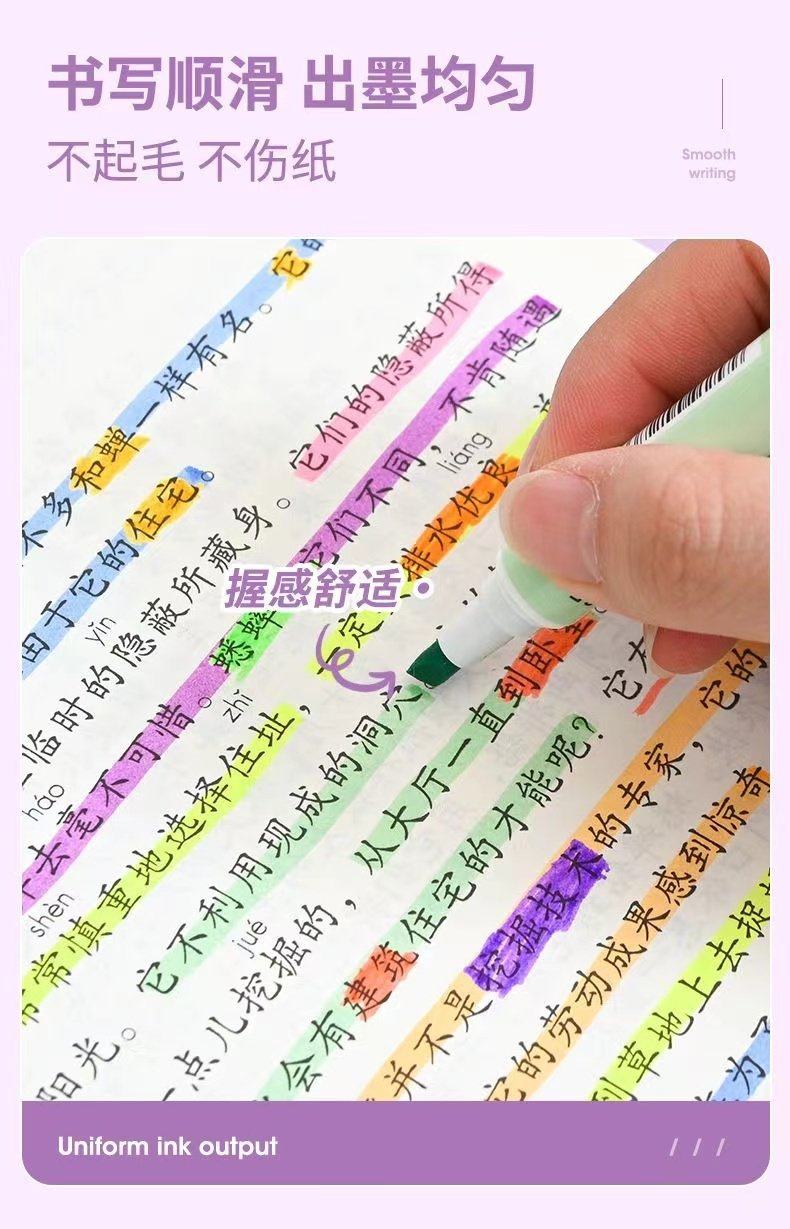 书写顺滑 出墨均匀
不起毛 不伤纸
Smooth
writing
它
不多和蝉一样有名。
由于它的住宅。
yǐn
临时的隐蔽所藏身。它们的隐蔽所得
去毫不可惜。蟋蟀 它们不同，不肯随遇
háo
zhǐ
liáng
常慎重地选择住址， 定 排水优良
shèn
握感舒适
阳光。它不利用现成的洞穴
jué
一点儿挖掘的，从大厅一直到卧
会有建筑住宅的才能呢？它
并不是挖掘技术的专家，它的
它的劳动成果感到惊奇
到草地上去捉
为了
Uniform ink output